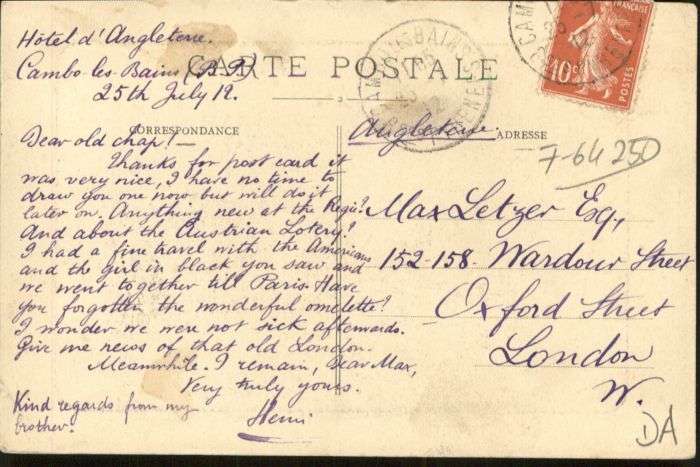 Hôtel d'Angleterre.
Cambo les Bains (B.P)
25th July 12.
CARTE POSTALE
CORRESPONDANCE
ADRESSE
Dear old chap! —
Thanks for post card it
was very nice, I have no time to
draw you one now but will do it
later on. Anything new at the Regie?
And about the Austrian Lotery?
I had a fine travel with the Americans
and the girl in black you saw and
we went together till Paris. Have
you forgotten the wonderful omelette?
I wonder we were not sick afterwards.
Give me news of that old London.
Meanwhile I remain, Dear Max,
Very truly yours.
Henri
Kind regards from my
brother.
Angleterre.
Max Letzer Esq,
152-158 Wardour Street
Oxford Street
London
W.
7-64 250
DA
10c
POSTES